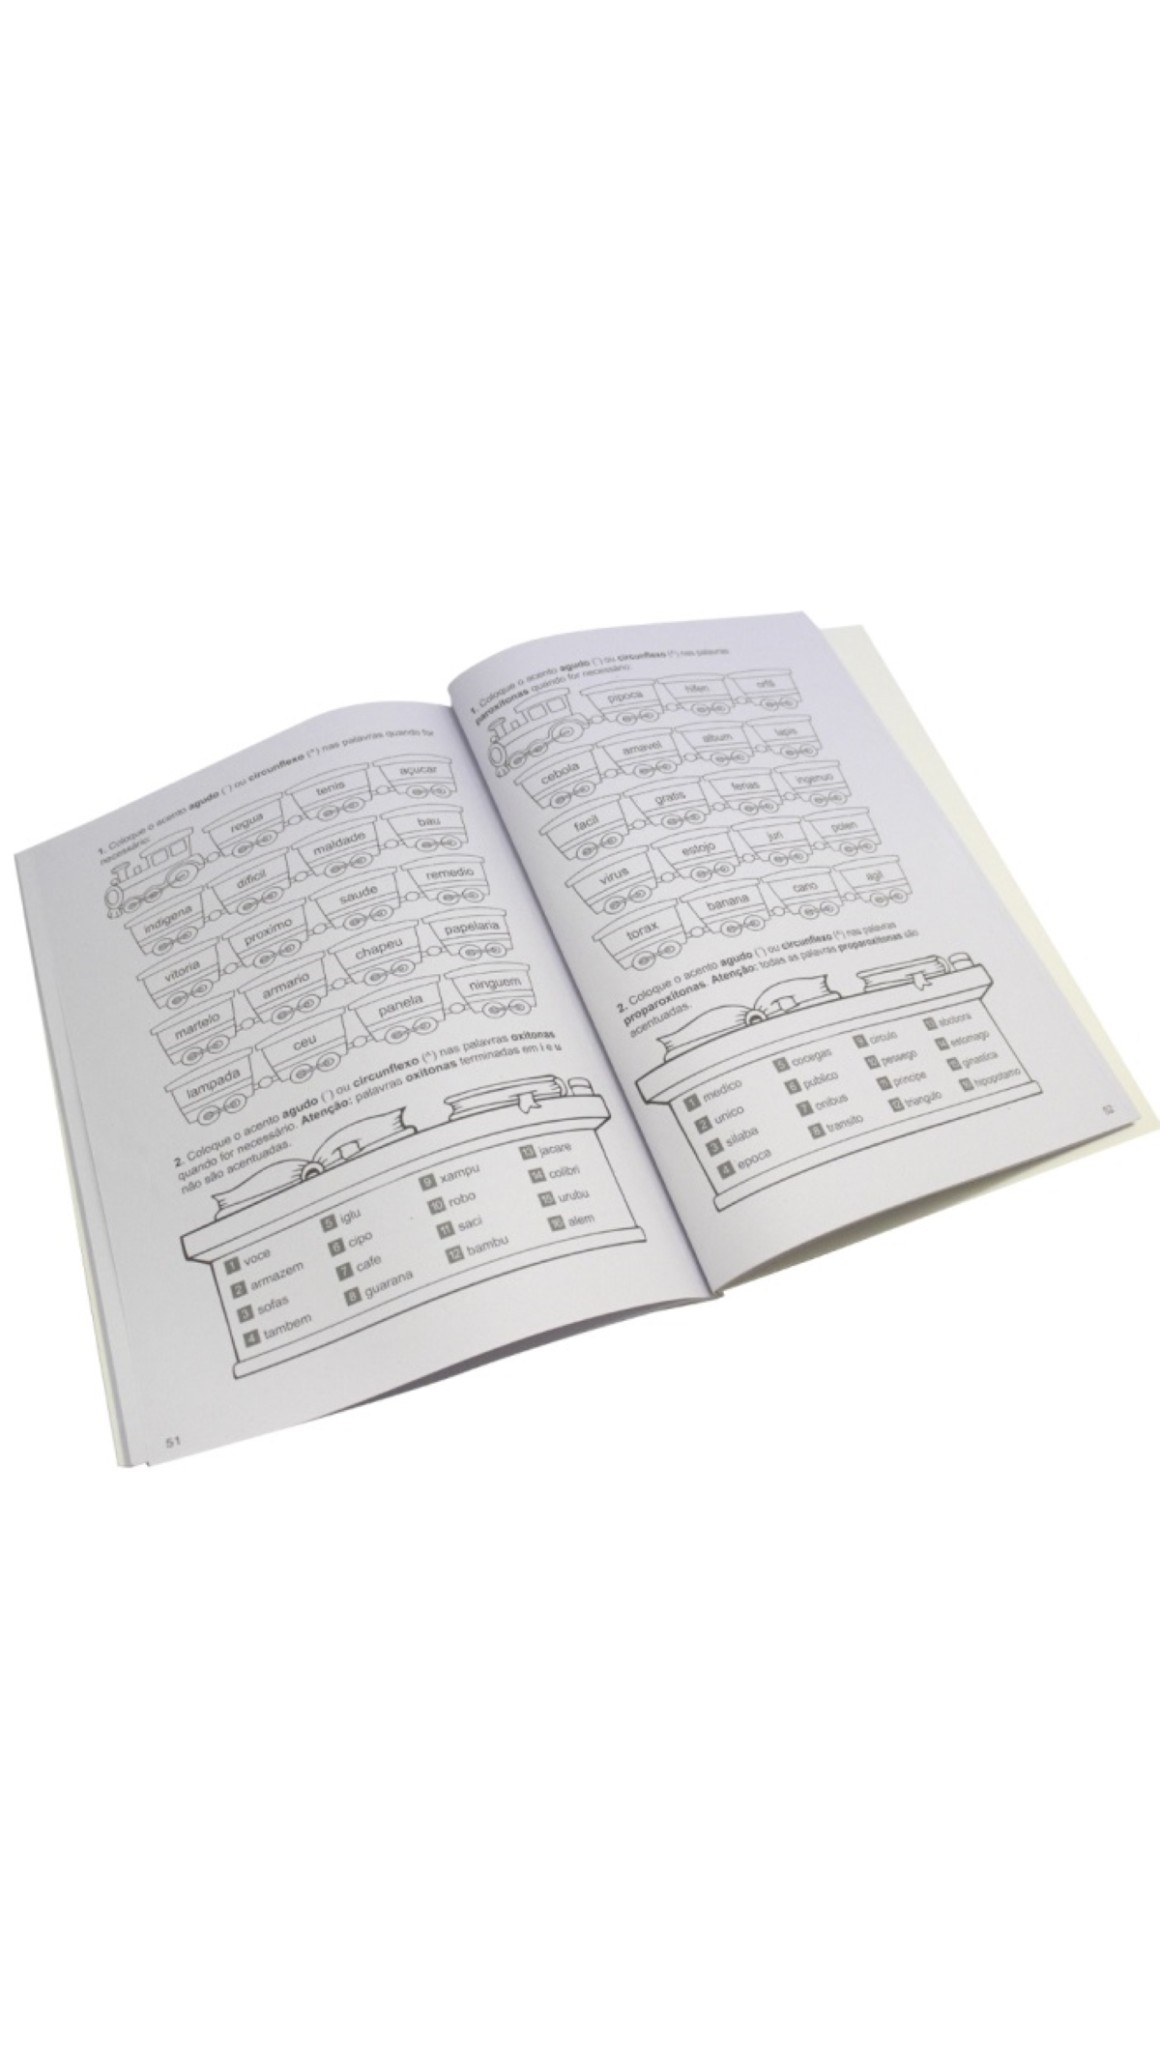 1. Coloque o acento agudo (´) ou circunflexo (^) nas palavras quando for
necessário:
regua tenis açucar
indigena dificil maldade bau
vitoria proximo saude remedio
martelo armario chapeu papelaria
lampada ceu panela ninguem
2. Coloque o acento agudo (´) ou circunflexo (^) nas palavras oxítonas
quando for necessário. Atenção: palavras oxítonas terminadas em i e u
não são acentuadas.
1 voce
2 armazem
3 sofas
4 tambem
5 iglu
6 cipo
7 cafe
8 guarana
9 xampu
10 robo
11 saci
12 bambu
13 jacare
14 colibri
15 urubu
16 alem
51
1. Coloque o acento agudo (´) ou circunflexo (^) nas palavras
paroxítonas quando for necessário:
pipoca hifen orfã
cebola amavel album lapis
facil gratis ferias ingenuo
virus estojo juri polen
torax banana cano agil
2. Coloque o acento agudo (´) ou circunflexo (^) nas palavras
proparoxítonas. Atenção: todas as palavras proparoxítonas são
acentuadas.
1 medico
2 unico
3 silaba
4 epoca
5 cocegas
6 publico
7 onibus
8 transito
9 circulo
10 pessego
11 principe
12 triangulo
13 abobora
14 estomago
15 ginastica
16 hipopotamo
52